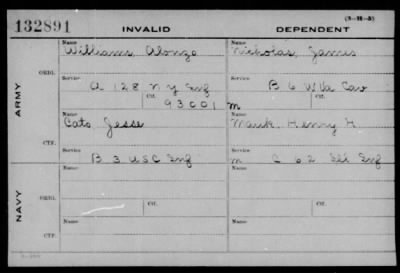 (3-18-3)
132891 INVALID DEPENDENT
Name Name
Williams, Alonzo Nicholas, James
ARMY ORIG. Service Service
A 128 N Y Inf B 6 W Va Cav
Ctf. Ctf.
93001 m
Name Name
Cato, Jesse Mauk, Henry H
CTF. Service Service
B 3 USC Inf m C 62 Ill Inf
NAVY ORIG. Name Name
Ctf. Ctf.
CTF. Name Name